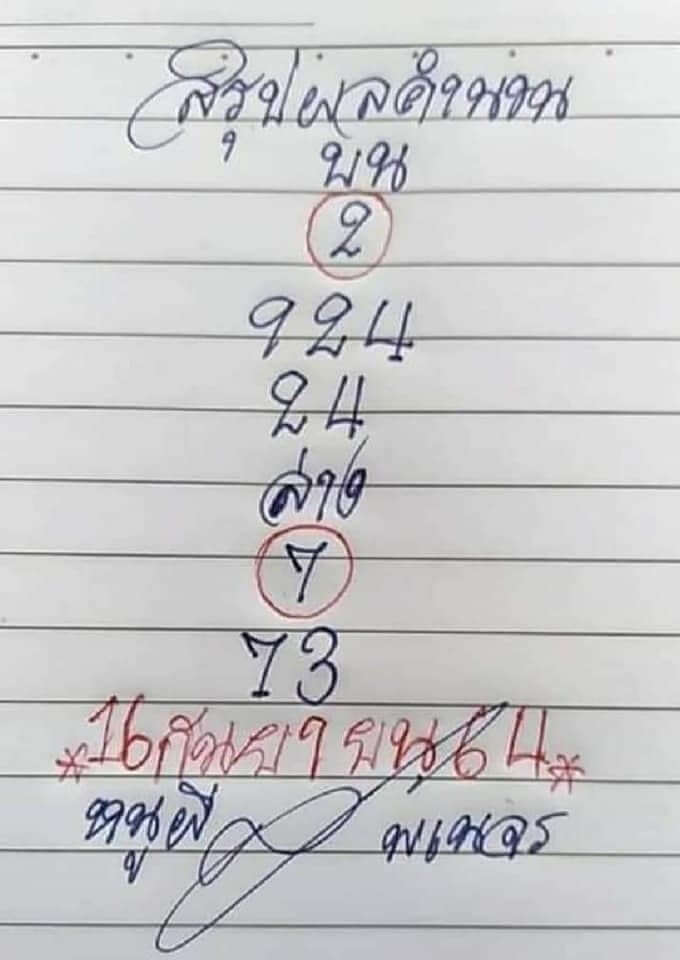 สรุปผลคำนวน
บน
2
924
24
ล่าง
7
73
*16 กันยายน 64*
หนูผี พเนจร